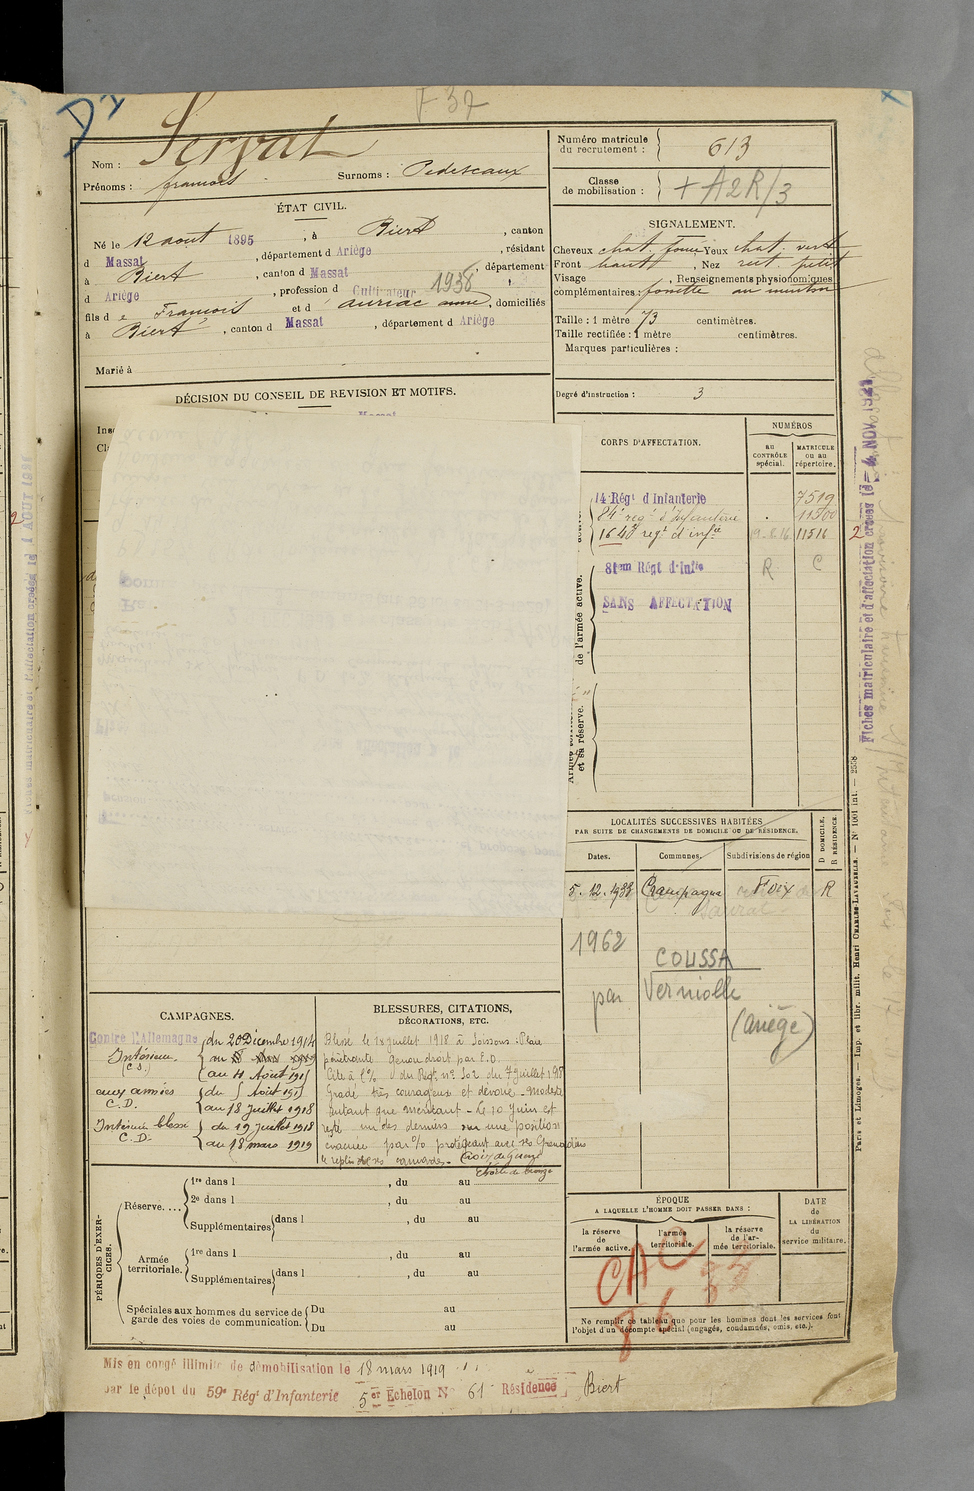 F 37
Servat
Nom :
Prénoms : francois
Surnoms : Pedescaux
Numéro matricule du recrutement : 613
Classe de mobilisation : + A2R/3
ÉTAT CIVIL.
Né le 12 aout 1895, à Biert, canton
d Massat, département d Ariège, résidant
à Biert, canton d Massat, département
d Ariège, profession d Cultivateur 1938,
fils d e Francois et d auriac anne, domiciliés
à Biert, canton d Massat, département d Ariège
Marié à
SIGNALEMENT.
Cheveux chat. foncé Yeux chat. vert
Front haut, Nez rect. petit
Visage , Renseignements physionomiques
complémentaires : fossette au menton
Taille : 1 mètre 73 centimètres.
Taille rectifiée : 1 mètre centimètres.
Marques particulières :
Degré d'instruction : 3
DÉCISION DU CONSEIL DE REVISION ET MOTIFS.
CORPS D'AFFECTATION.
NUMÉROS
au CONTRÔLE spécial.
MATRICULE ou au répertoire.
14 Régt d'Infanterie 7519
84e regt d'Infanterie 11500
164e regt d'infie 19.8.16 11516
81em Régt d'infie R C
SANS AFFECTATION
de l'armée active.
et sa réserve.
Fiches matriculaire et d'affectation créées le - 4 NOV. 1921
LOCALITÉS SUCCESSIVES HABITÉES
PAR SUITE DE CHANGEMENTS DE DOMICILE OU DE RÉSIDENCE.
Dates. Communes. Subdivisions de région
D DOMICILE. R RÉSIDENCE.
5.12.1933 Campagna Foix R
1962 COUSSA
par Verniolle
(Ariège)
Paris et Limoges. — Imp. et libr. milit. Henri CHARLES-LAVAUZELLE. — N° 1001 int. — 2558
CAMPAGNES.
Contre l'Allemagne du 20 Décembre 1914
Intérieur (C.S.)
au 4 Août 1915
aux armées C.D. du 5 Août 1915
au 18 Juillet 1918
Intérieur blessé C.D. du 19 Juillet 1918
au 18 mars 1919
BLESSURES, CITATIONS,
DÉCORATIONS, ETC.
Blessé le 18 juillet 1918 à Soissons : Plaie
pénétrante genou droit par E.O.
Cité à l'% du Regt n° 302 du 7 Juillet 1918
Gradé très courageux et dévoué - modeste
autant que méritant - Le 10 Juin est
resté un des derniers sur une position
évacuée par % protégeant avec ses Grenadiers
le repli de ses camarades. Croix de Guerre
Etoile de bronze
PÉRIODES D'EXERCICES.
Réserve....
1re dans l , du au
2e dans l , du au
Supplémentaires dans l , du au
Armée territoriale.
1re dans l , du au
Supplémentaires dans l , du au
Spéciales aux hommes du service de garde des voies de communication.
Du au
Du au
ÉPOQUE
A LAQUELLE L'HOMME DOIT PASSER DANS :
la réserve de l'armée active.
l'armée territoriale.
la réserve de l'armée territoriale.
DATE de LA LIBÉRATION du service militaire.
CAC
86
Ne remplir ce tableau que pour les hommes dont les services font
l'objet d'un décompte spécial (engagés, condamnés, omis, etc.).
Mis en congé illimité de démobilisation le 18 mars 1919
par le dépôt du 59e Régt d'Infanterie 5er Echelon N° 61 Résidence Biert